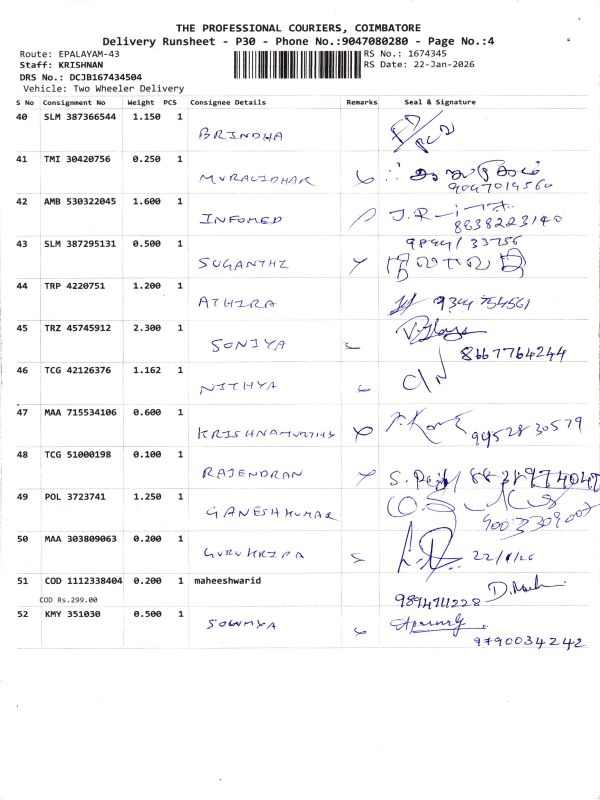 THE PROFESSIONAL COURIERS, COIMBATORE
Delivery Runsheet - P30 - Phone No.:9047080280 - Page No.:4
Route: EPALAYAM-43 RS No.: 1674345
Staff: KRISHNAN RS Date: 22-Jan-2026
DRS No.: DCJB167434504
Vehicle: Two Wheeler Delivery
S No Consignment No Weight PCS Consignee Details Remarks Seal & Signature
40 SLM 387366544 1.150 1
BRINDHA
41 TMI 30420756 0.250 1
MURALIDHAR
9047014560
42 AMB 530322045 1.600 1
INFOMED J.R
8838223140
43 SLM 387295131 0.500 1
SUGANTHI
44 TRP 4220751 1.200 1
ATHIRA 9344 754561
45 TRZ 45745912 2.300 1
SONIYA
8667764244
46 TCG 42126376 1.162 1
NITHYA C/N
47 MAA 715534106 0.600 1
KRISHNAMURTHY 9452830579
48 TCG 51000198 0.100 1
RAJENDRAN
49 POL 3723741 1.250 1
GANESH KUMAR
9003309007
50 MAA 303809063 0.200 1
GURU KRIPA 22/1/26
51 COD 1112338404 0.200 1 maheeshwarid
COD Rs.299.00
9894711228
52 KMY 351030 0.500 1
SOWMYA
9790034242